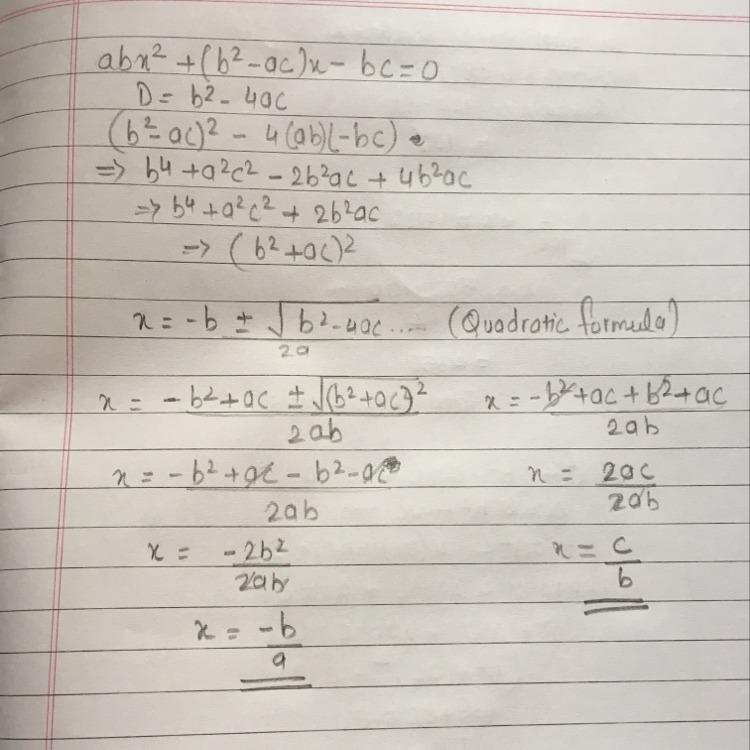 abx² + (b² - ac)x - bc = 0
D = b² - 4ac
(b² - ac)² - 4(ab)(-bc)
⇒ b⁴ + a²c² - 2b²ac + 4b²ac
⇒ b⁴ + a²c² + 2b²ac
⇒ (b² + ac)²
x = -b ± √b² - 4ac .... (Quadratic formula)
2a
x = -b² + ac ± √(b² + ac)²
2ab
x = -b² + ac - b² - ac
2ab
x = -2b²
2ab
x = -b
a
x = -b² + ac + b² + ac
2ab
x = 2ac
2ab
x = c
b